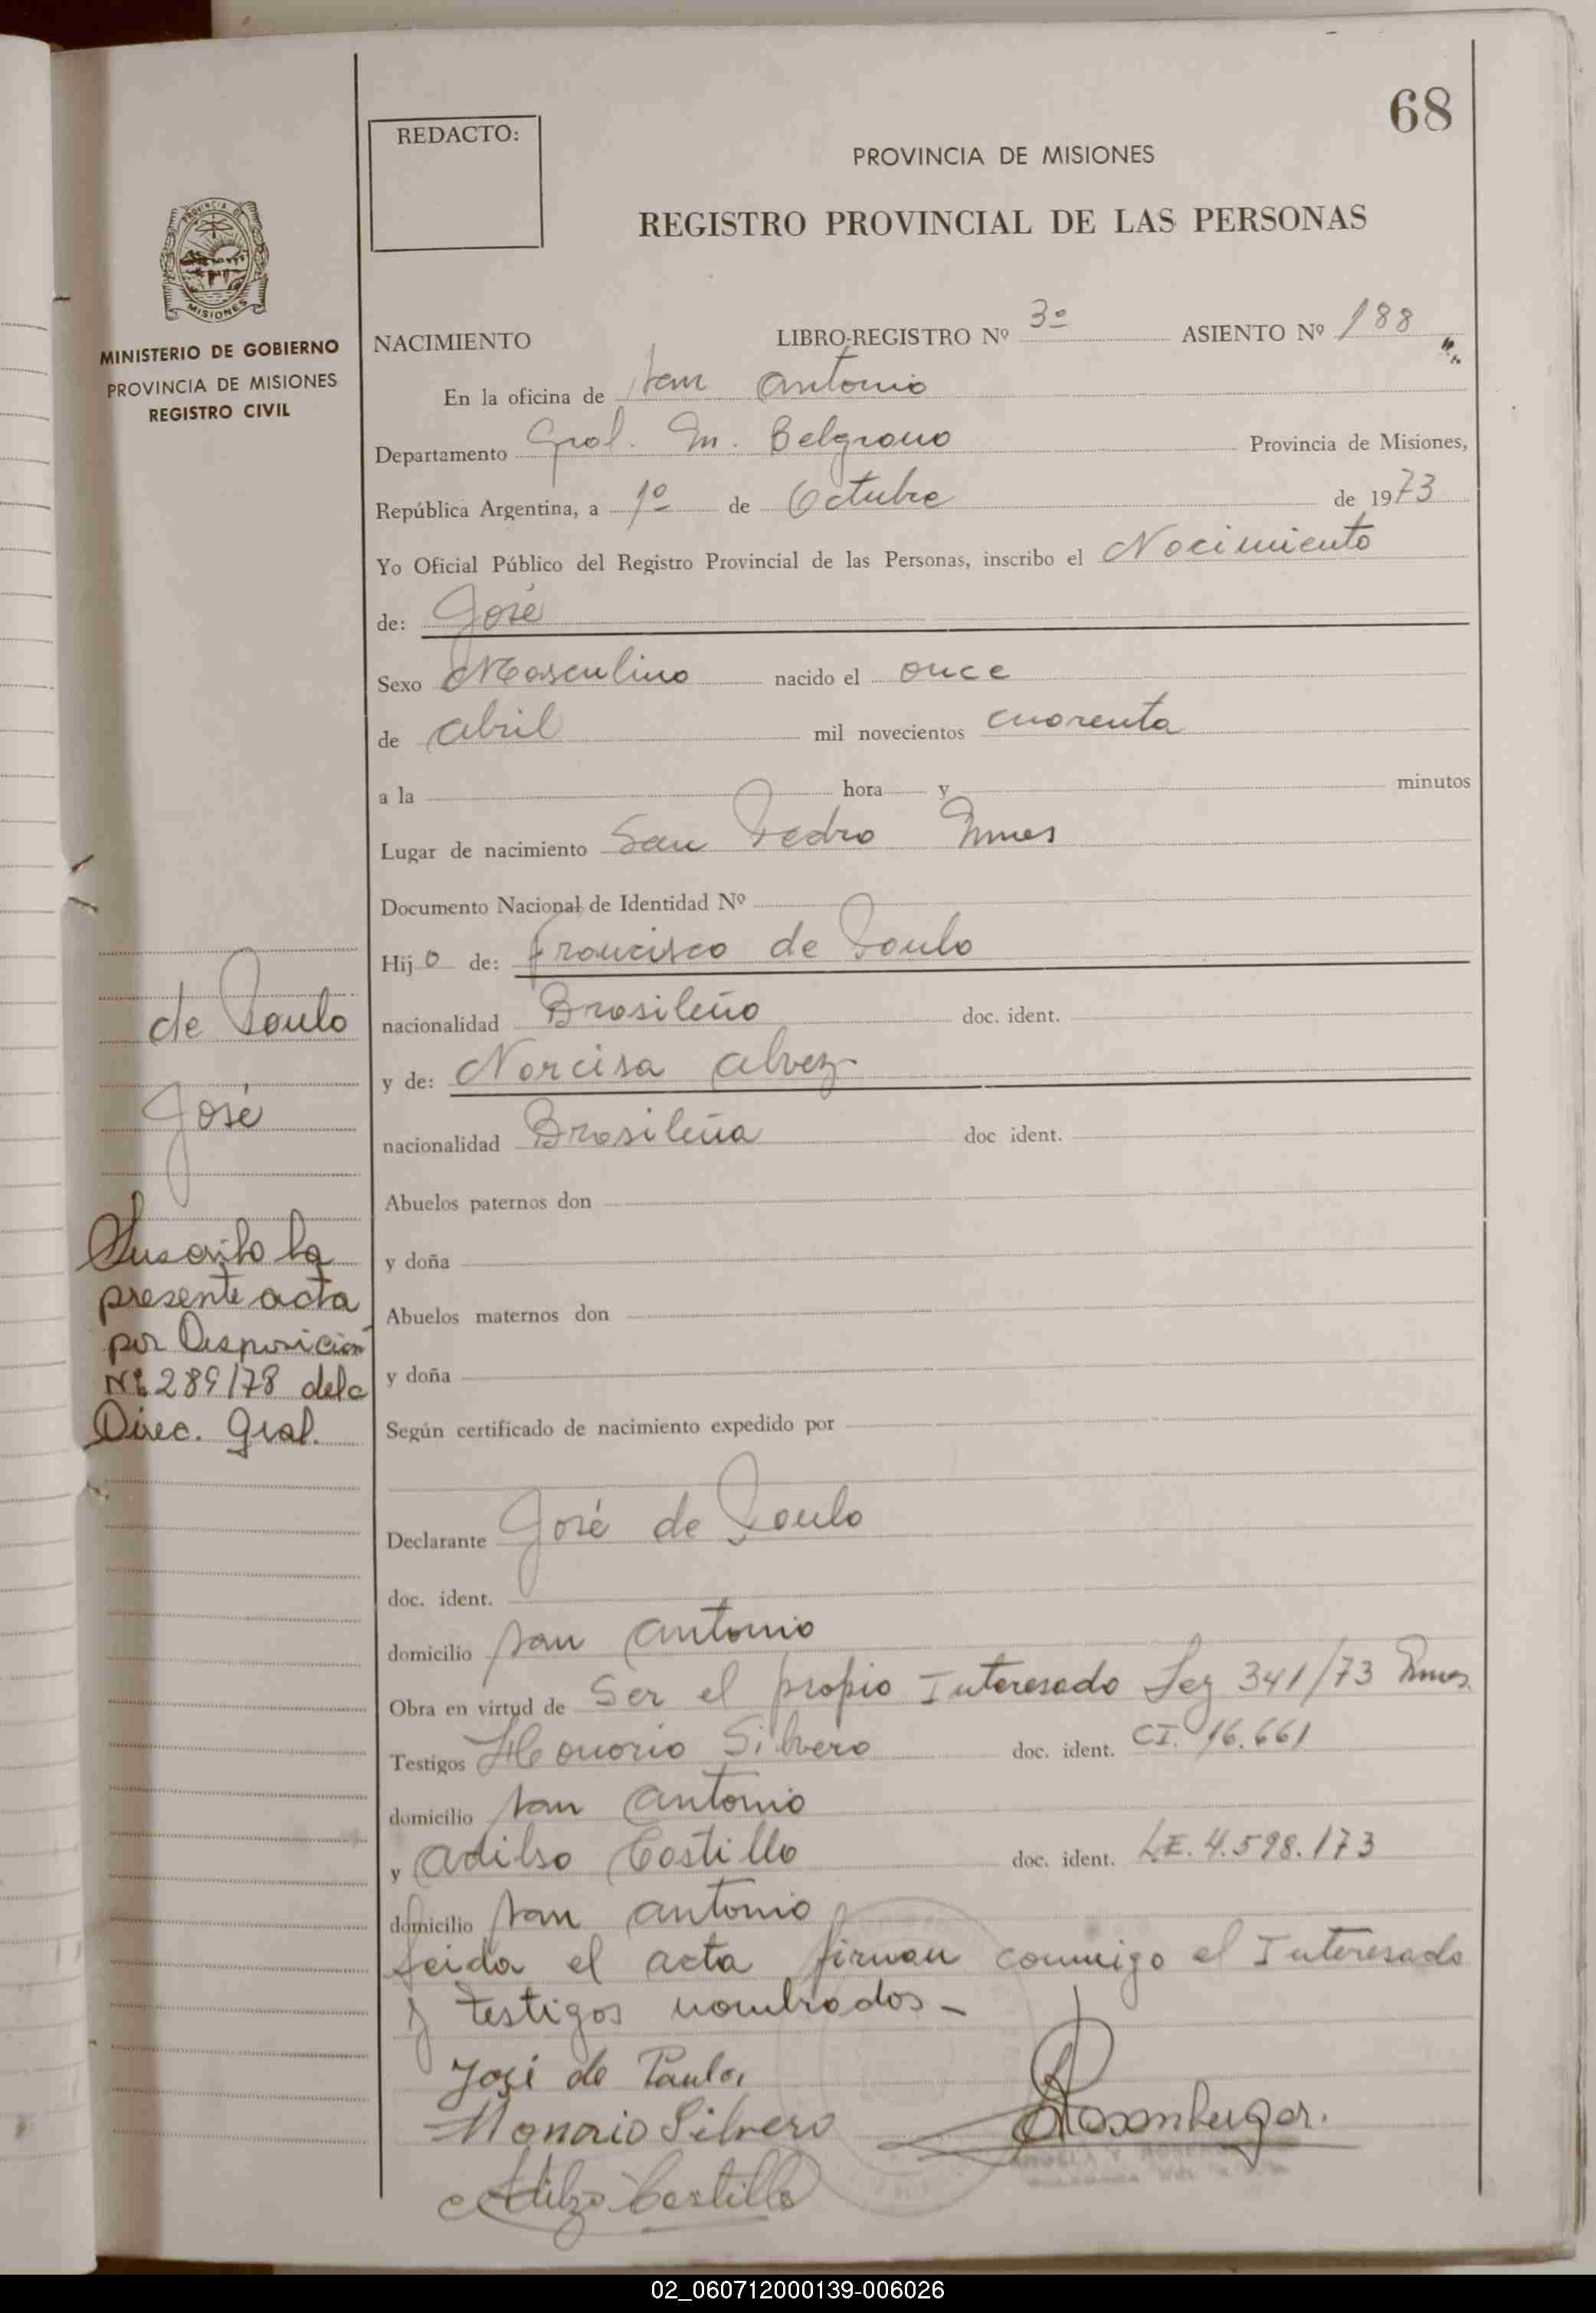 68
REDACTO:
PROVINCIA DE MISIONES
REGISTRO PROVINCIAL DE LAS PERSONAS
PROVINCIA DE
MISIONES
MINISTERIO DE GOBIERNO
PROVINCIA DE MISIONES
REGISTRO CIVIL
NACIMIENTO LIBRO-REGISTRO Nº 3º ASIENTO Nº 188
En la oficina de San Antonio
Departamento Gral. M. Belgrano Provincia de Misiones,
República Argentina, a 1º de Octubre de 1973
Yo Oficial Público del Registro Provincial de las Personas, inscribo el Nacimiento
de: José
Sexo Masculino nacido el once
de abril mil novecientos cuarenta
a la hora y minutos
Lugar de nacimiento San Pedro Mnes
Documento Nacional de Identidad Nº
Hijo de: Francisco de Paulo
nacionalidad Brasileño doc. ident.
y de: Narcisa Alvez
nacionalidad Brasileña doc ident.
Abuelos paternos don
y doña
Abuelos maternos don
y doña
Según certificado de nacimiento expedido por
Declarante José de Paulo
doc. ident.
domicilio San Antonio
Obra en virtud de Ser el propio Interesado Ley 341/73 Mnes.
Testigos Honorio Silvero doc. ident. CI. 16.661
domicilio San Antonio
y Adilso Castillo doc. ident. L.E. 4.598.173
domicilio San Antonio
Leida el acta firman conmigo el Interesado
y testigos nombrados-
José de Paula
Honorio Silvero
Adilso Castillo
de Paulo
José
Suscrito la
presente acta
por Disposición
Nº 289/78 de la
Direc. Gral.
02_060712000139-006026